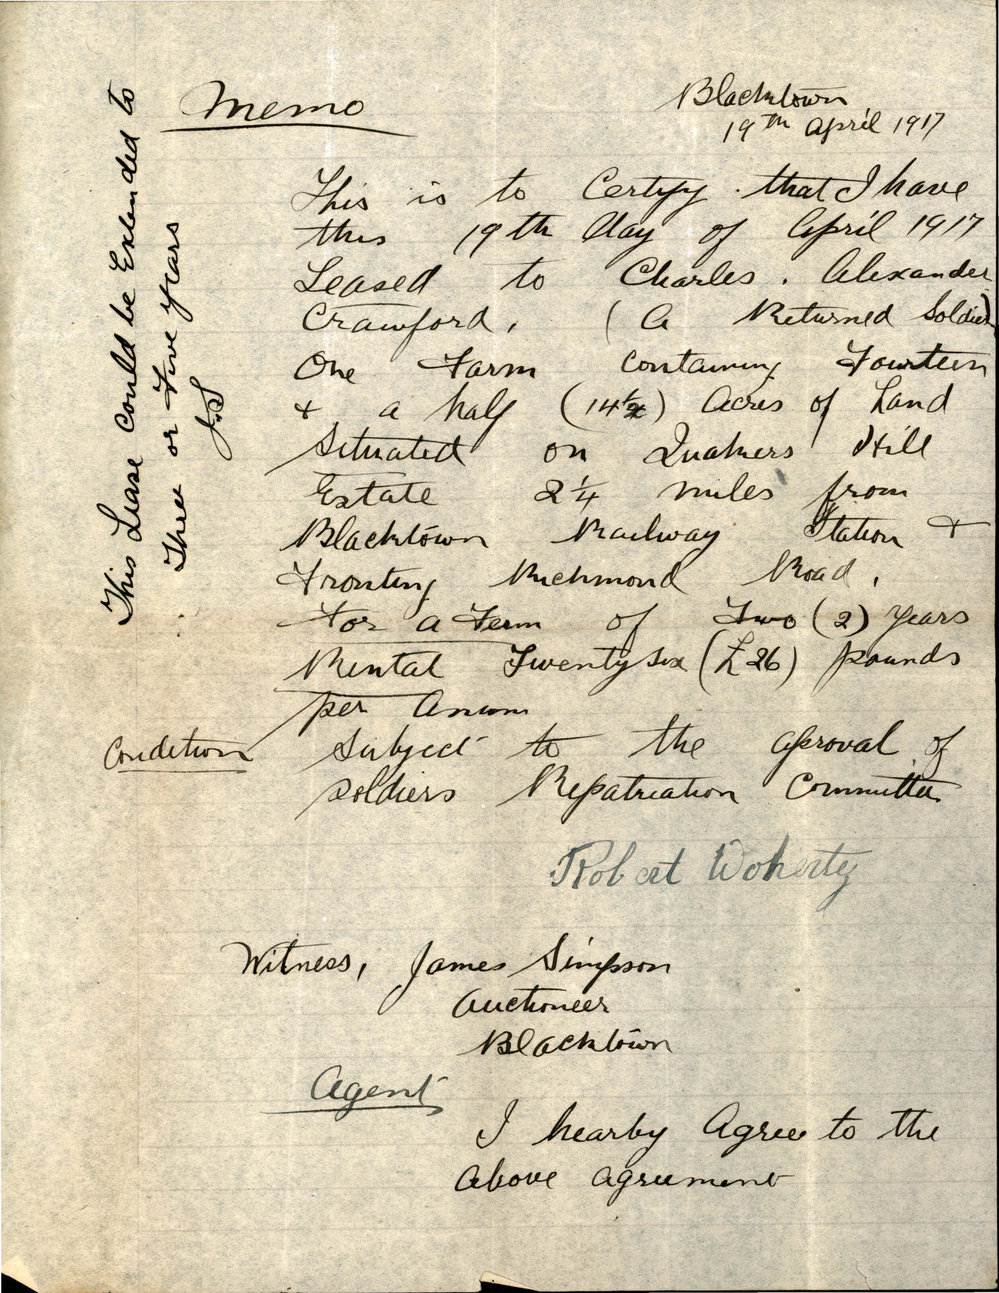 Memo
Blacktown
19th April 1917
This is to Certify that I have
this 19th day of April 1917
Leased to Charles. Alexander
Crawford. (A Returned Soldier)
One Farm containing Fourteen
+ a half (14½) Acres of Land
Situated on Quakers Hill
Estate 2¼ miles from
Blacktown Railway Station +
Fronting Richmond Road.
For a Term of Two (2) years
Rental Twenty Six (£26) pounds
per Annum
Condition Subject to the aproval of
Soldiers Repatriation Committee
Robert Doherty
Witness, James Simpson
Auctioneer
Blacktown
Agent
I hearby Agree to the
above agreement
This Lease could be Extended to
Three or Five years
J.S